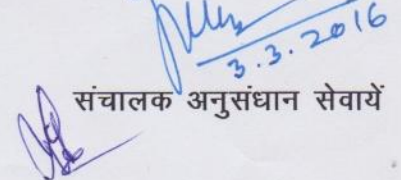 3.3.2016
संचालक अनुसंधान सेवायें